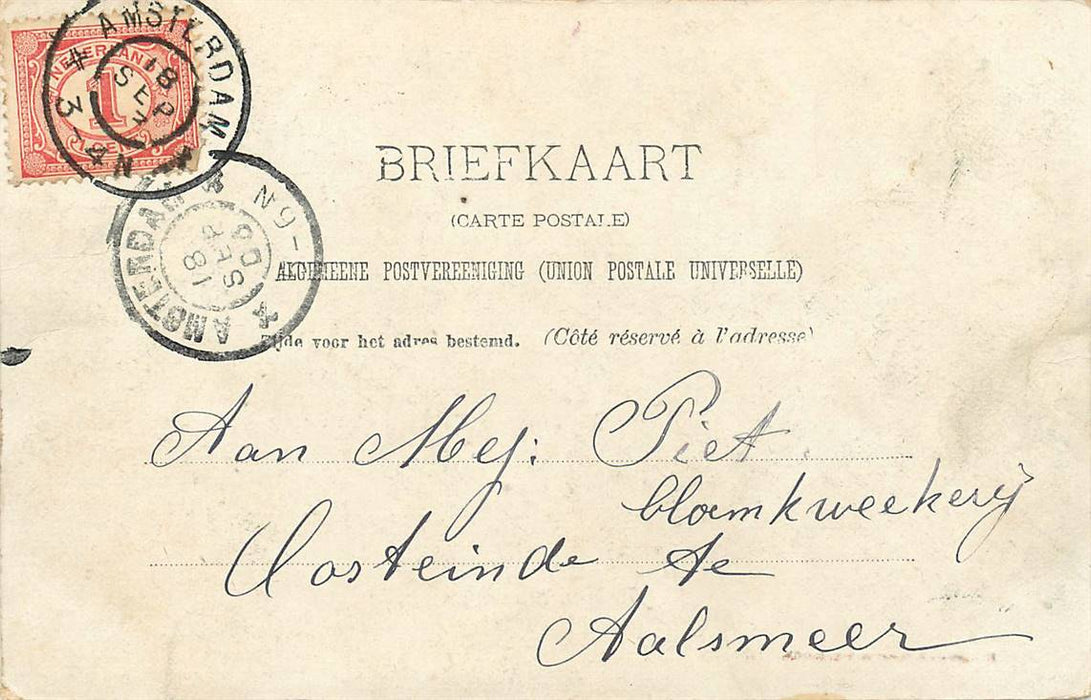 AMSTERDAM
18
SEP
3-4 N
NEDERLAND
1
CENT
BRIEFKAART
(CARTE POSTALE)
ALGEMEENE POSTVEREENIGING (UNION POSTALE UNIVERSELLE)
Zijde voor het adres bestemd. (Côté réservé à l'adresse)
AMSTERDAM
18
SEP
05
Aan Mej: Piet
bloemkweekerij
Oosteinde te
Aalsmeer